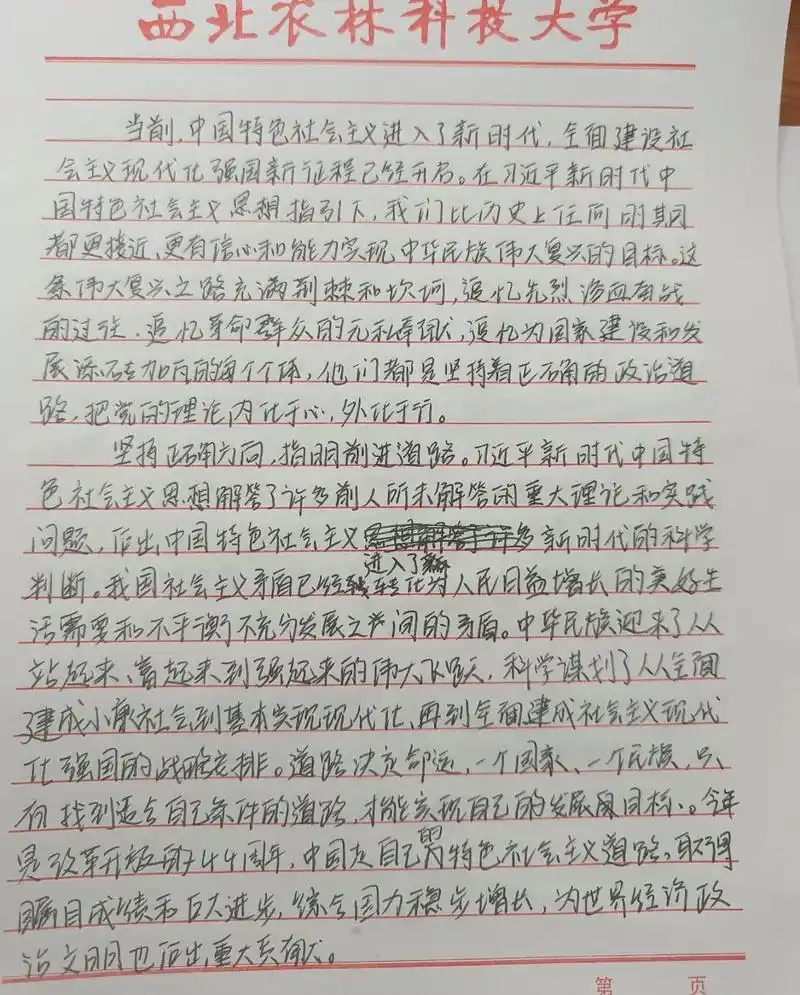 西北农林科技大学
当前,中国特色社会主义进入了新时代,全面建设社
会主义现代化强国新征程已经开启。在习近平新时代中
国特色社会主义思想指引下,我们比历史上任何时期
都更接近,更有信心和能力实现中华民族伟大复兴的目标。这
条伟大复兴之路充满荆棘和坎坷,追忆先烈浴血奋战
的过往,追忆革命群众的无私奉献,追忆为国家建设和发
展添砖加瓦的每个个体,他们都是坚持着正确的政治道
路,把党的理论内化于心,外化于行。
坚持正确方向,指明前进道路。习近平新时代中国特
色社会主义思想解答了许多前人所未解答的重大理论和实践
问题,作出中国特色社会主义进入了新时代的科学
判断。我国社会主义矛盾已经转化为人民日益增长的美好生
活需要和不平衡不充分发展之间的矛盾。中华民族迎来了从
站起来、富起来到强起来的伟大飞跃,科学谋划了从全面
建成小康社会到基本实现现代化,再到全面建成社会主义现代
化强国的战略安排。道路决定命运,一个国家、一个民族,只
有找到适合自己条件的道路,才能实现自己的发展目标。今年
是改革开放的44周年,中国走自己的特色社会主义道路,取得
瞩目成绩和巨大进步,综合国力稳步增长,为世界经济政
治文明也作出重大贡献。
第 页